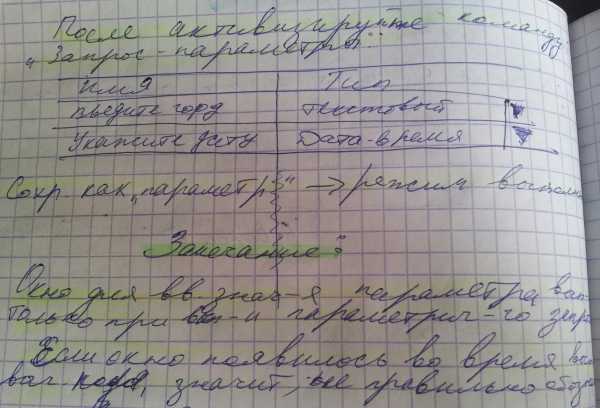 После активизируйте команду
"Запрос-параметры":
Имя Тип
Введите город текстовый
Укажите дату Дата-время
Сохр. как "параметр" → режим
Замечание:
Окно для вв. знач-я параметра
только при параметрич-го
Если окно появилось во время
значит, не правильно